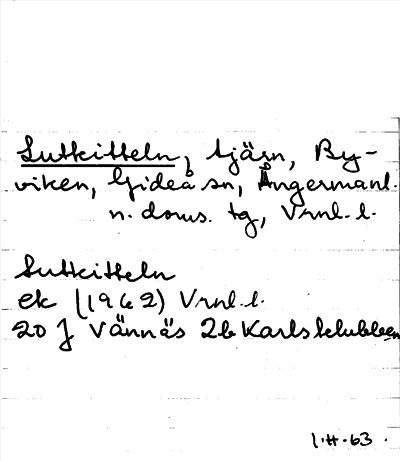 Lutkitteln, tjärn, By-
viken, Gideå sn, Ångermanl.
n. doms. tg, Vrnl. l.
Lutkitteln
ek (1962) Vrnl. l.
20 J Vännäs 2b Karlsklubben
1.4.63.